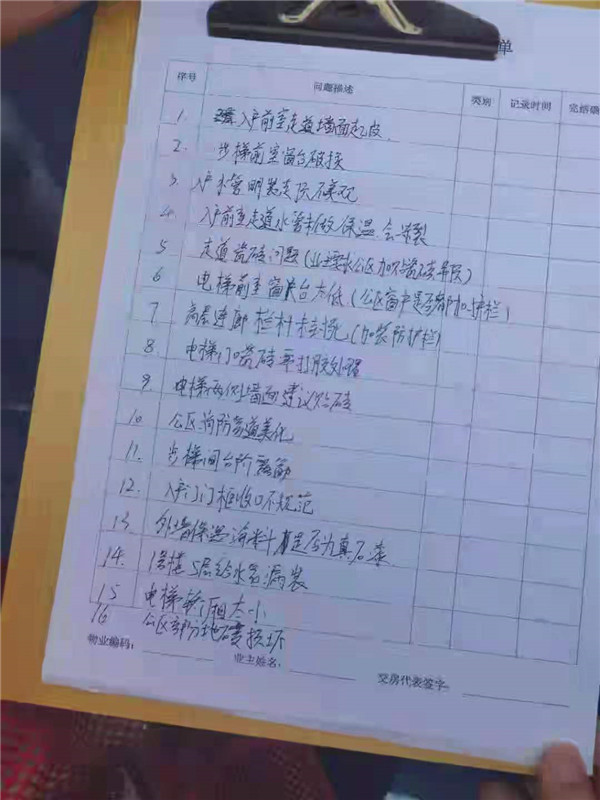 单
序号 问题描述 类别 记录时间 完结确
1. 入户前室走道墙面起皮.
2. 步梯前室窗台破损
3. 入户水管明装支顶不美观
4. 入户前室走道水管未做保温.会冻裂
5 走道瓷砖问题(业主要求公区加贴瓷砖吊顶)
6 电梯前室窗台太低(公区窗户是否都加护栏)
7 高层连廊栏杆摇晃.(加装防护栏)
8. 电梯门口瓷砖要打胶处理
9. 电梯两侧墙面建议贴砖
10. 公区消防管道美化
11. 步梯间台阶
12. 入户门门框收口不规范
13. 外墙保温涂料是否为真石漆
14. 1号楼5层给水管漏装
15 电梯轿厢太小
16 公区部分地砖损坏
物业编码: 业主姓名: 交房代表签字: